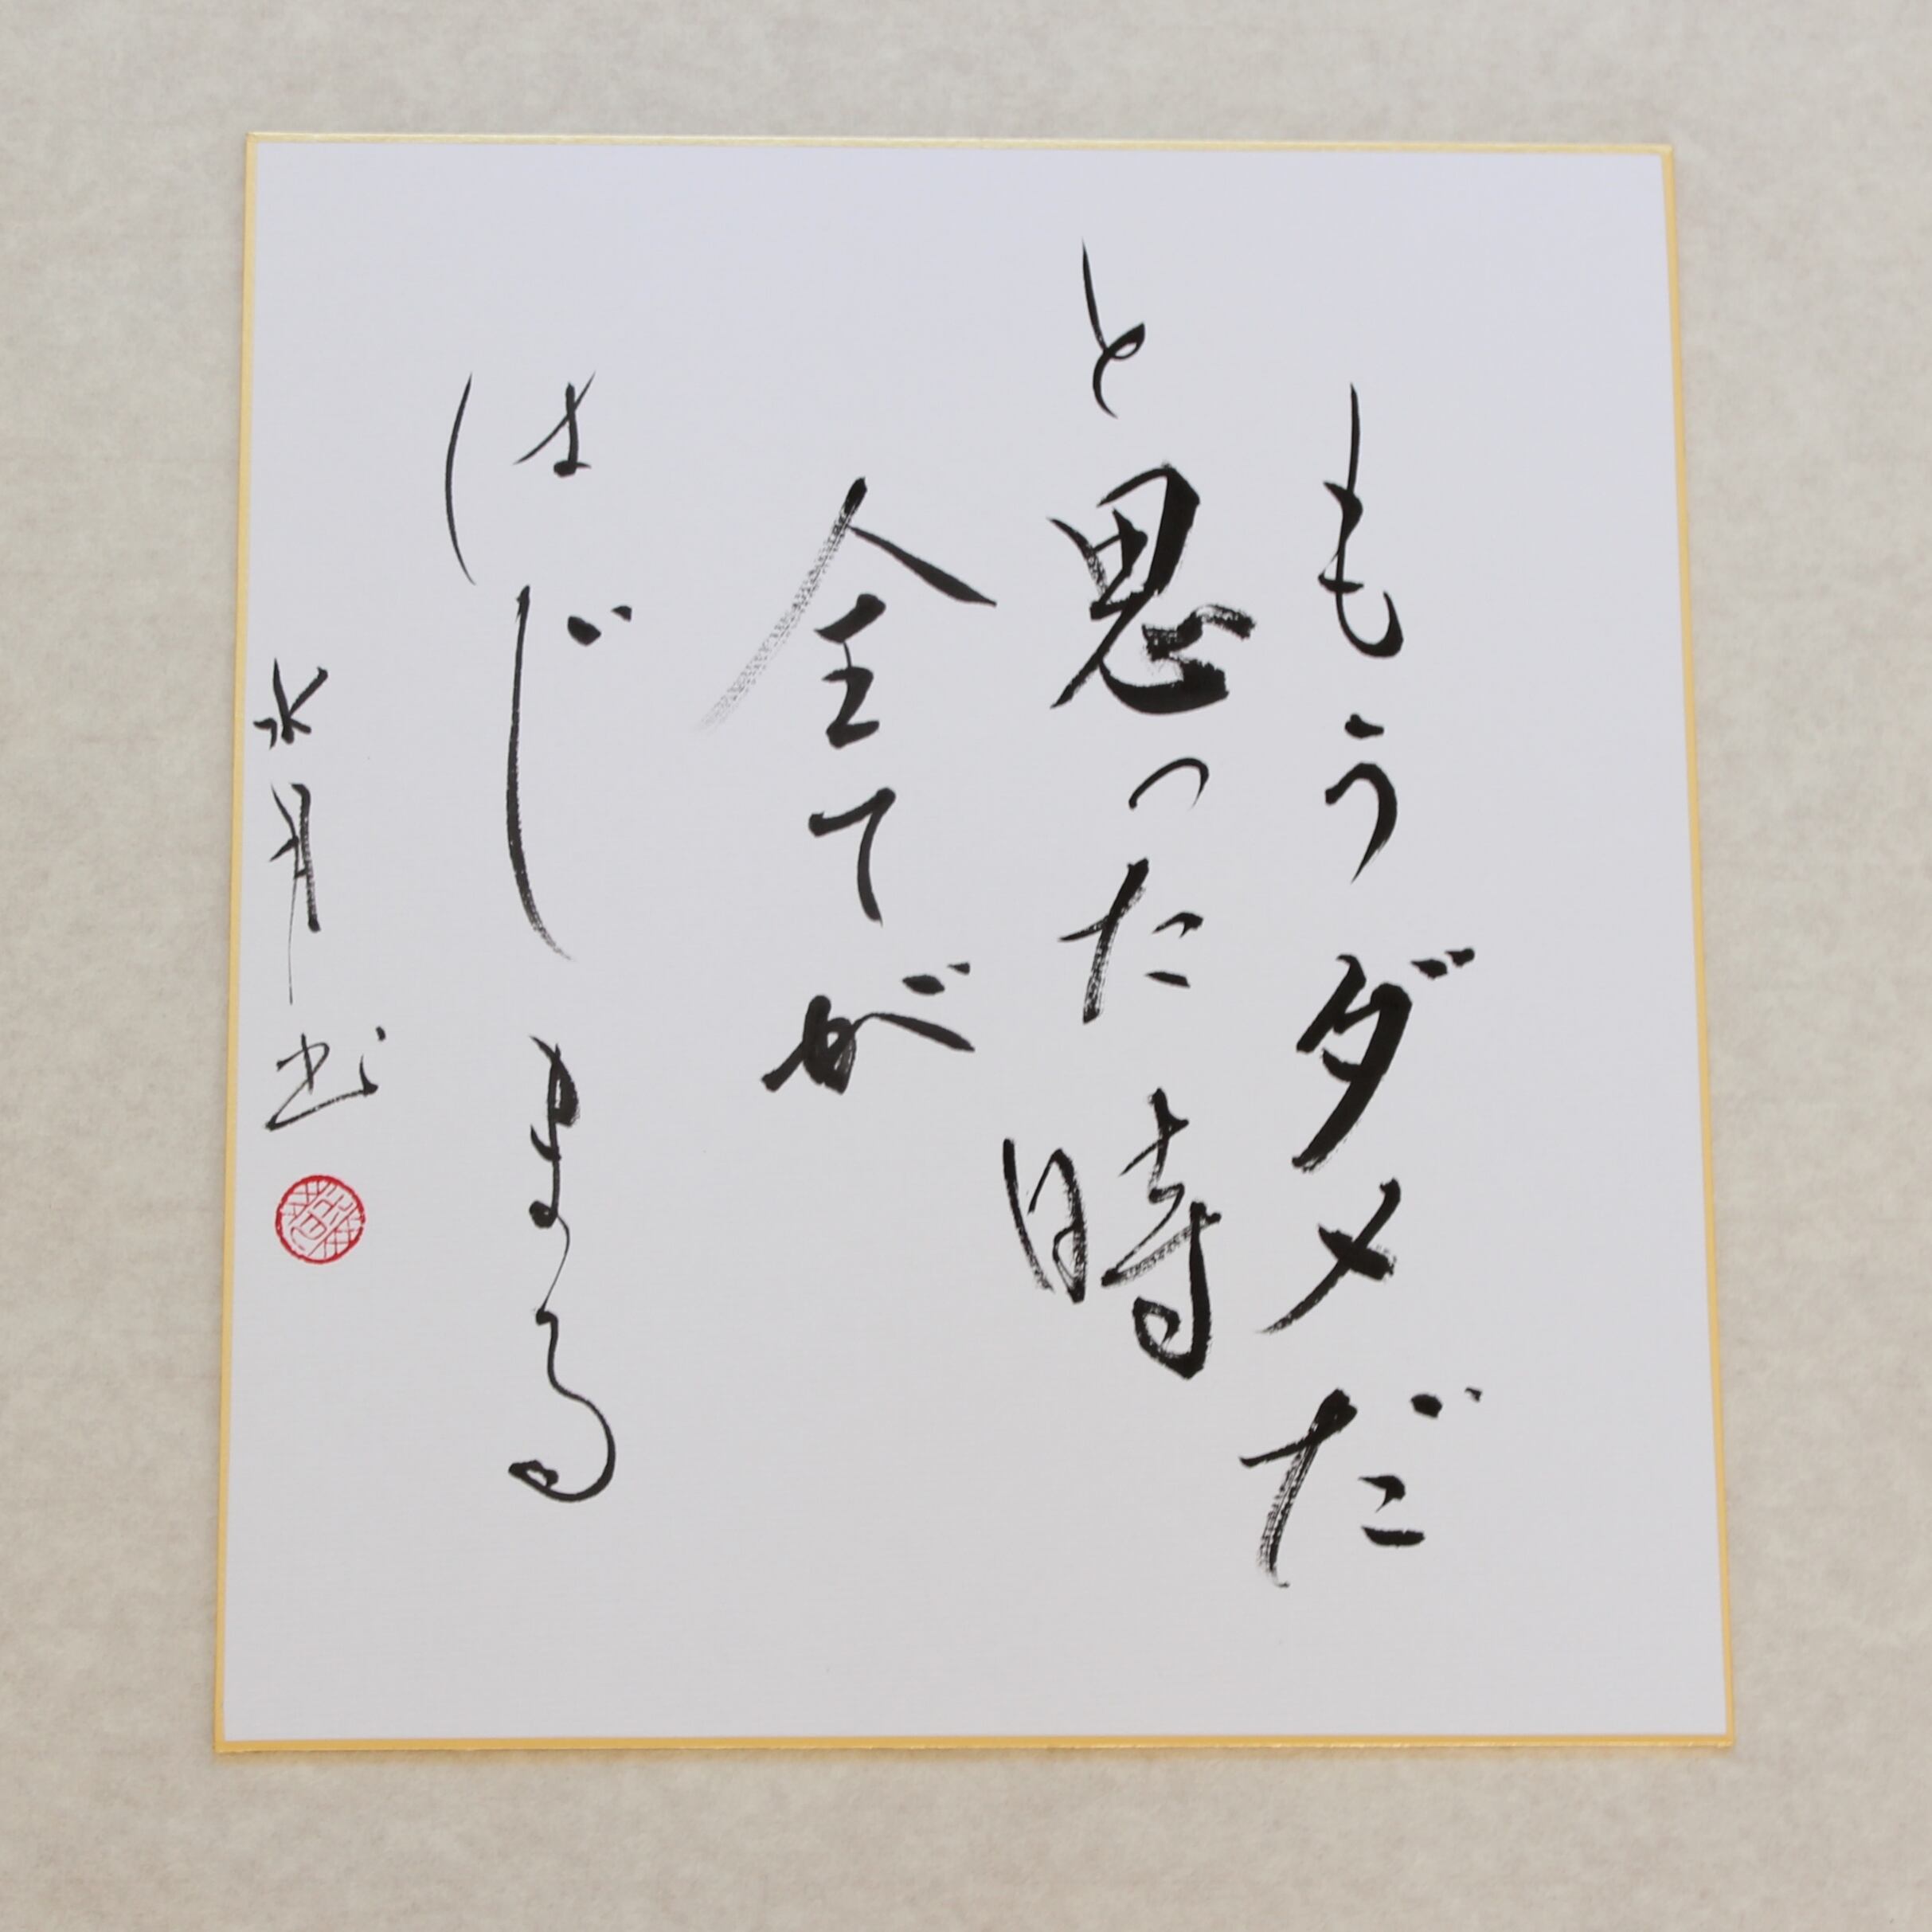 もうダメだ
と思った時
全てが
はじまる
水月書